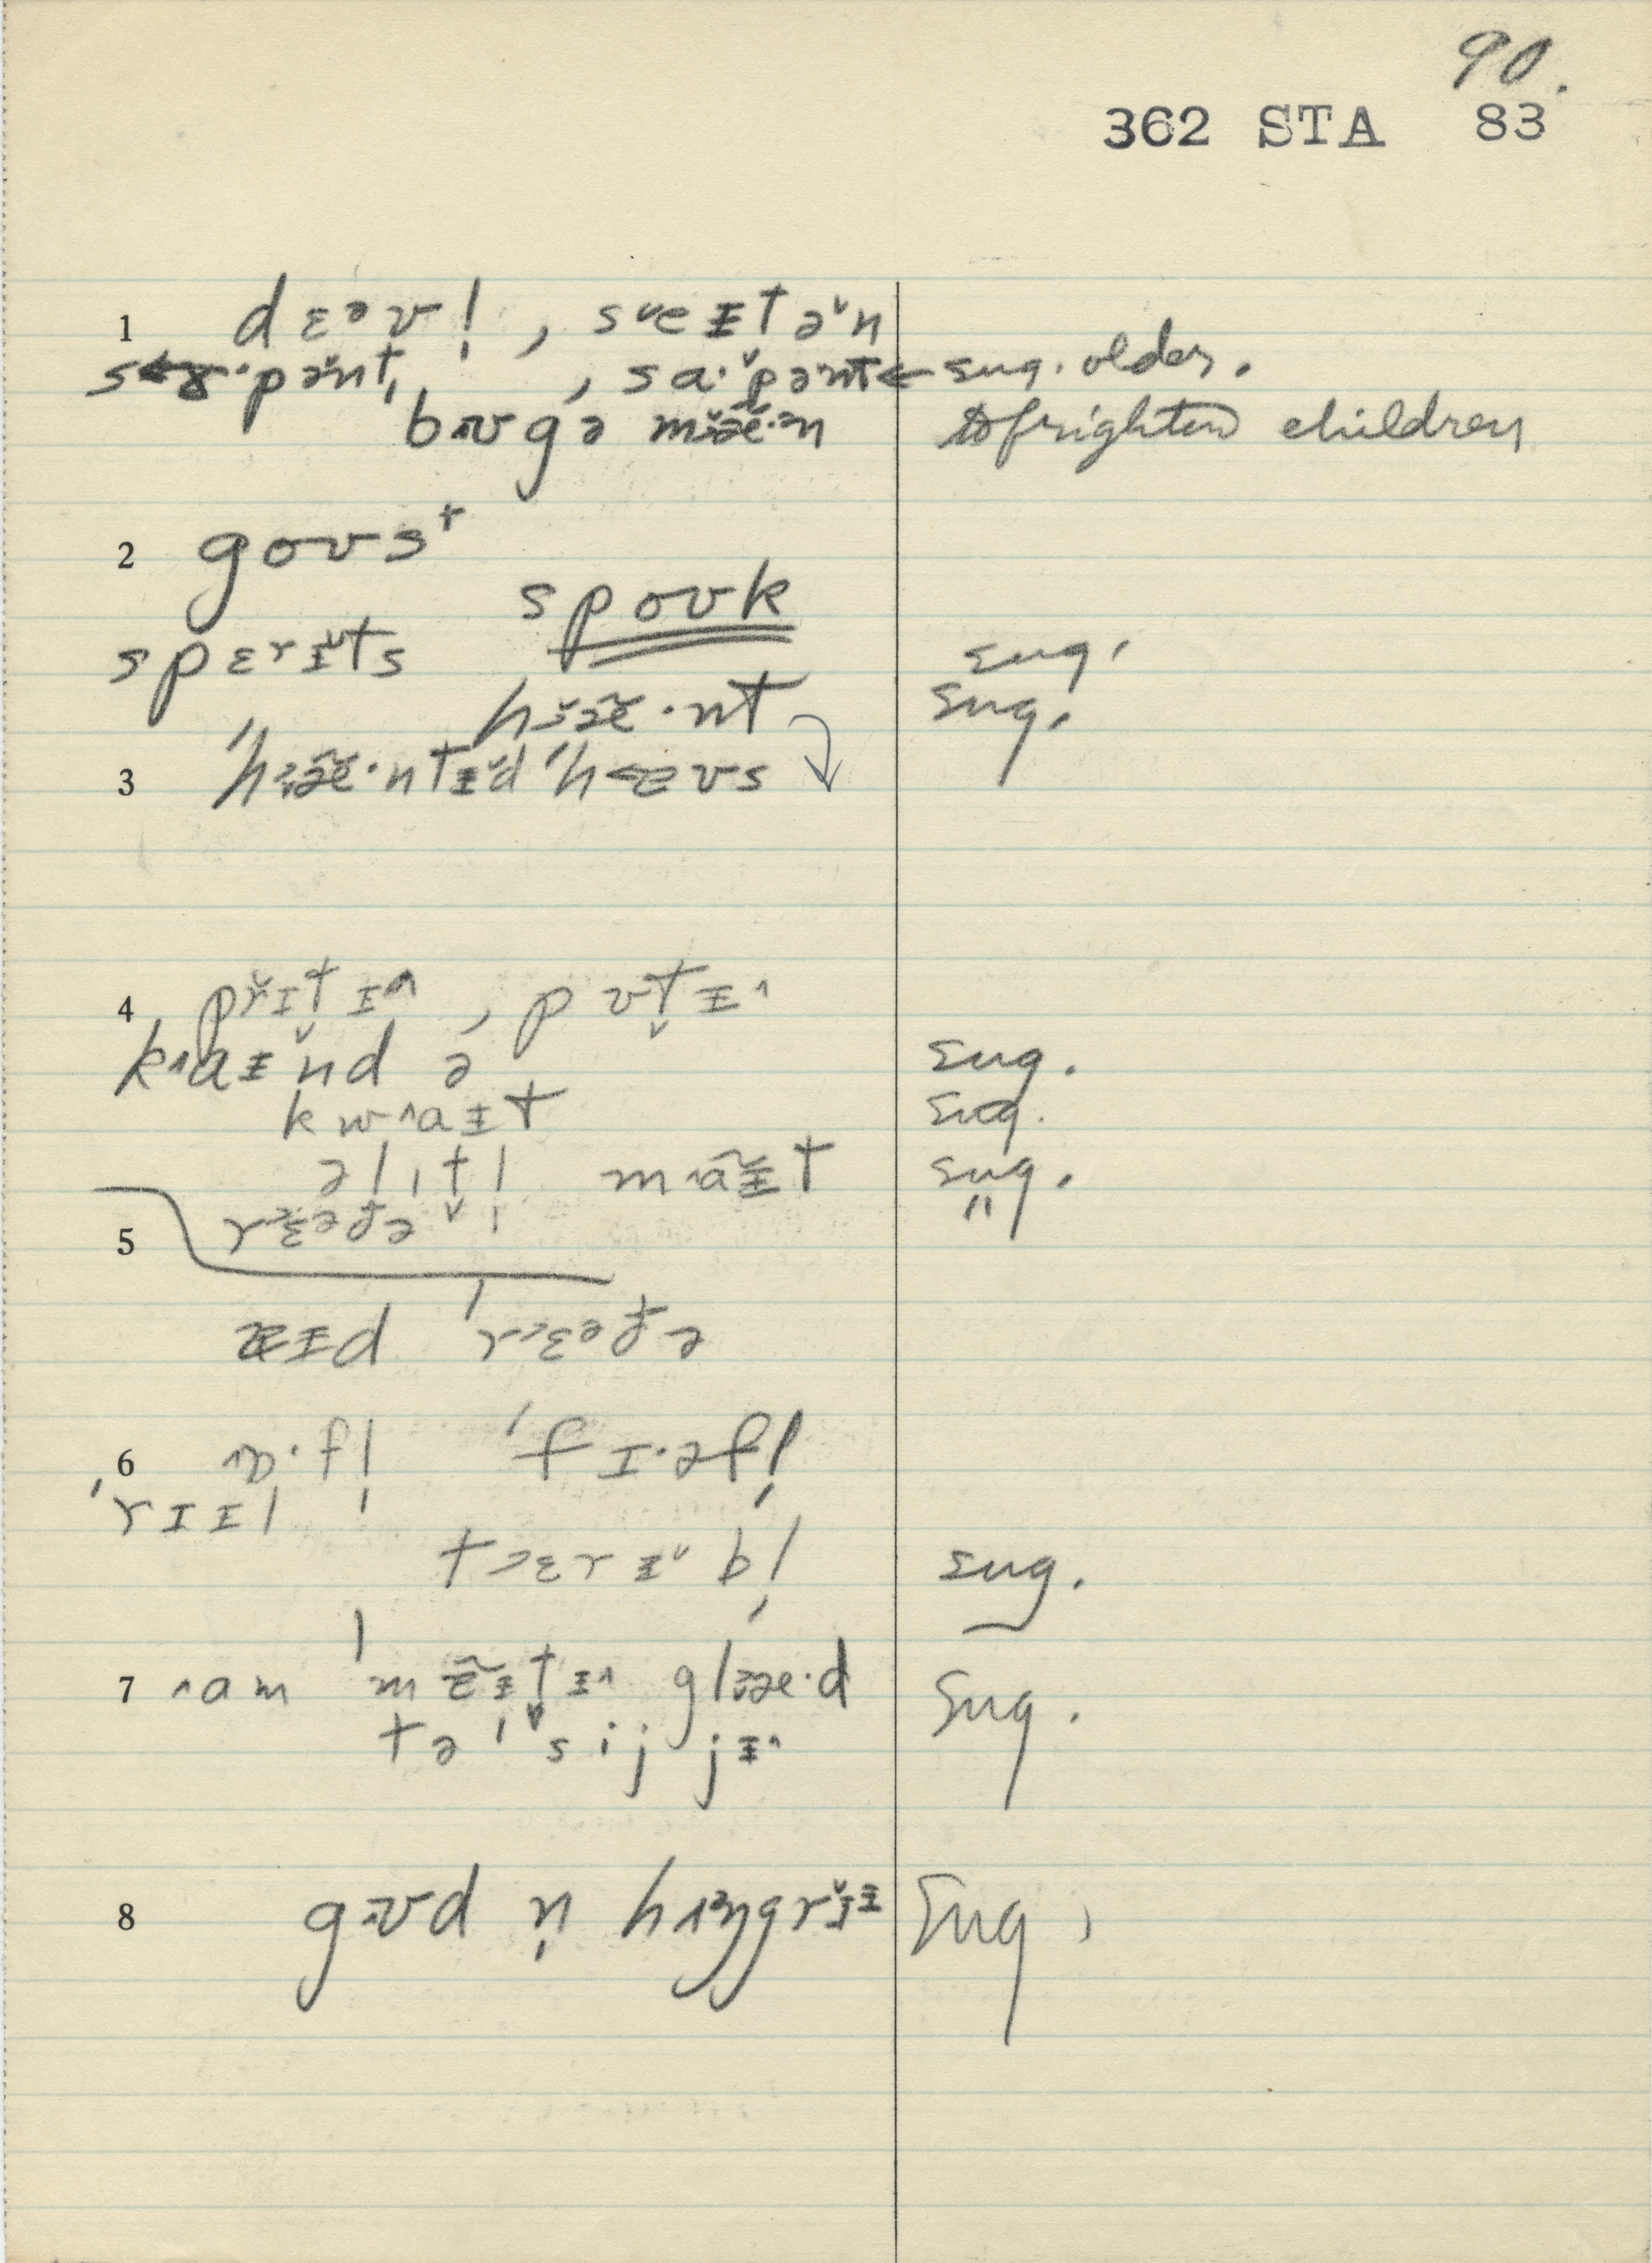 90.
362 STA 83
1 dɛəvl̩, seɪtən
sɜ·pənt, sa·pənt ← sug. older.
bʊgə mæ·ən to frighten children
2 goʊst
spoʊk
spɛrɪts sug.
hɔæ·nt sug.
3 ˈhɔæ·ntɨd ˈhæʊs
4 prɪtɪ, pʊtɪ
kaɪnd ə sug.
kwaɪt sug.
ə lɪtl̩ maɪt sug.
rɛəðə "
5 æɪd ˈrɛəðə
6 ɒ·fl̩ ˈfɪ·əfl̩
ˈrɪɪl
tɛrɨbl̩ sug.
7 am ˈmɛɪtɪ glæ·d sug.
tə ˈsij jɪ
8 gʊd n̩ hʌŋgrɪɪ sug.